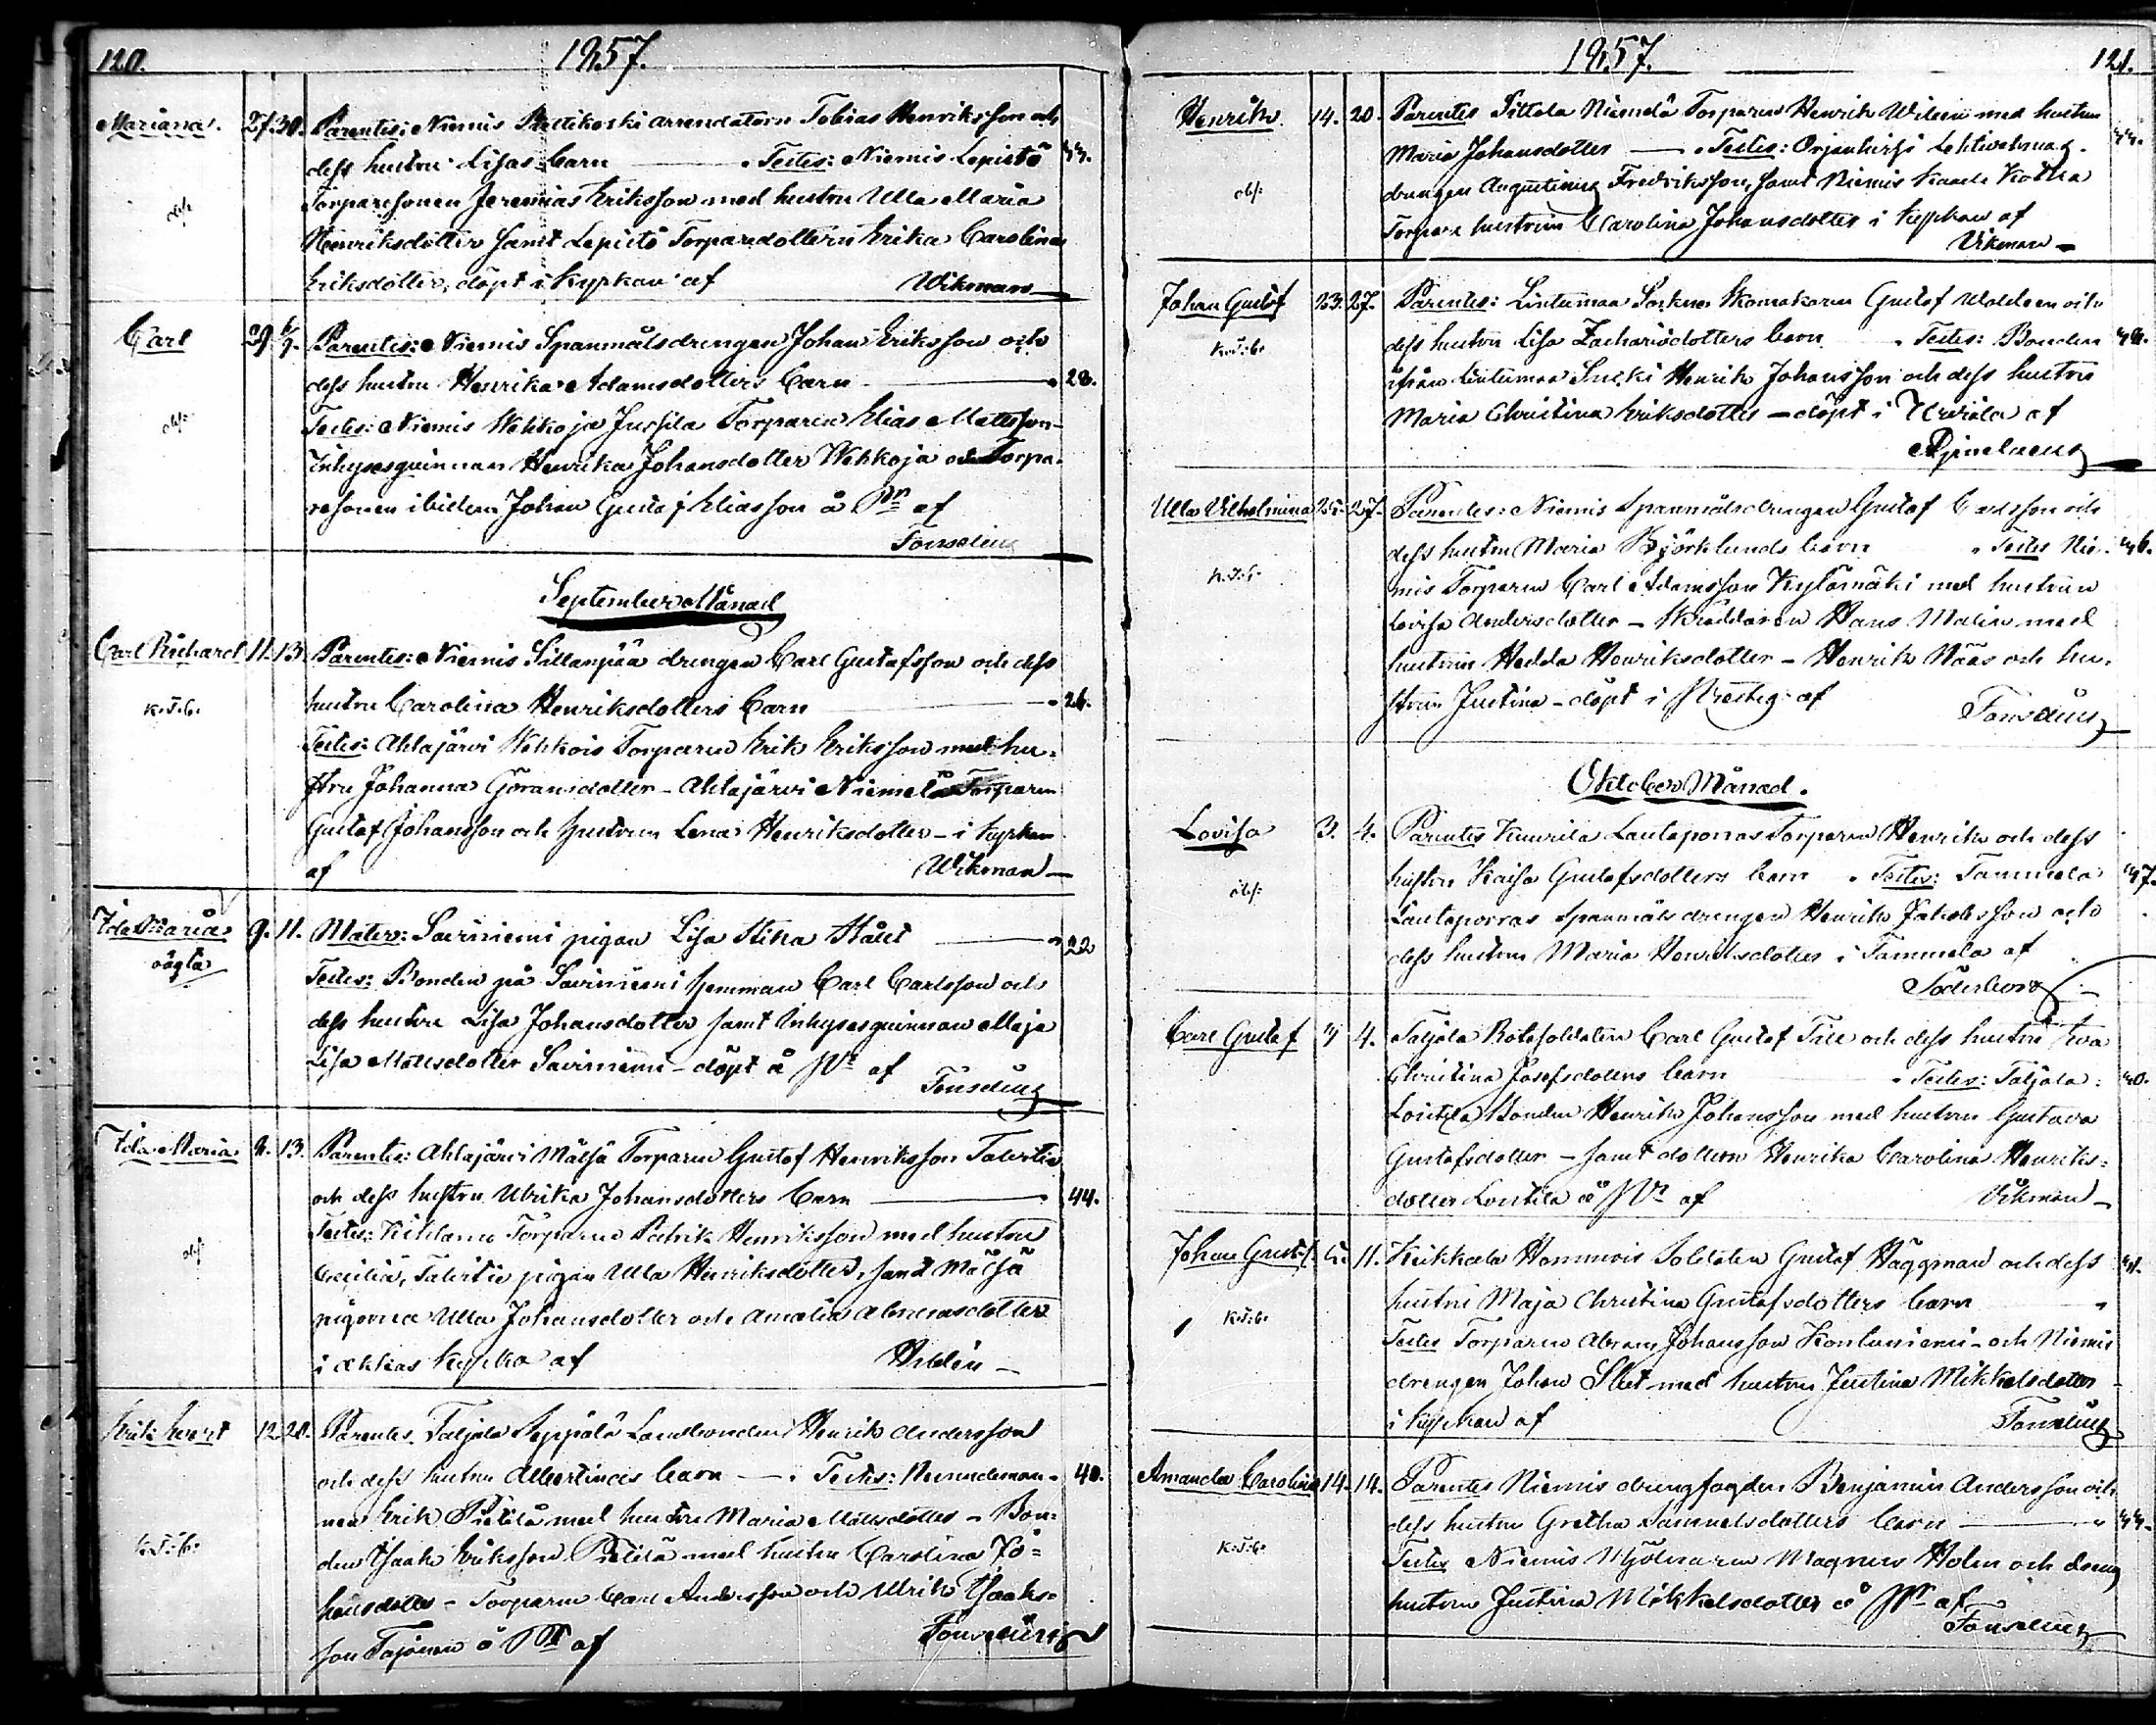 120. 1857.
Mariana. 27. 30. Parentes: Niemis arrendatorn Tobias Henriksson och
dess hustru Lisas barn Testes: Niemis Lepistö
Torparesonen Jeremias Eriksson med hustru Ulla Maria
Henriksdotter samt Lepistö Torparedottern Erika Carolina
Eriksdotter, döpt i Kyrkan af Wikman
Carl 29 6/9. Parentes: Niemis Spanmålsdrengen Johan Eriksson och
dess hustru Henrika Adamsdotters barn 28.
Testes: Niemis Wehkoja Jussila Torparen Elias Mattsson
Inhysesquinnan Henrika Johansdotter Wehkoja och Torpa-
resonen ibidem Johan Gustaf Eliasson å af
Fonselius
September Månad
Carl Richard 11. 13. Parentes: Niemis Sillanpää drengen Carl Gustafsson och dess
k.T.b. hustru Carolina Henriksdotters barn 26.
Testes: Ahlajärvi Wehkois Torparen Erik Eriksson med hu-
stru Johanna Göransdotter - Ahlajärvi Niemelä Torparen
Gustaf Johansson och hustrun Lena Henriksdotter - i Kyrkan
af Wikman
Ida Maria 9. 11. Mater: Saviniemi pigan Lisa Stina Ståhl 22
oägta
Testes: Bonden på Saviniemi hemman Carl Carlsson och
dess hustru Lisa Johansdotter samt Inhysesquinnan Maja
Lisa Mattsdotter Saviniemi - döpt å af Fonselius
Ida Maria 13. Parentes: Ahlajärvi Mälsä Torparen Gustaf Henriksson
och dess hustru Ulrika Johansdotters barn 44.
Testes: Torparen Patrik Henriksson med hustru
Cecilia, pigan Ulla Henriksdotter, samt Mälsä
pigorna Ulla Johansdotter och Amalia
i Akkas Kyrka af Heldén
Erik Evert 12. 20. Parentes Taljala Seppälä Landbonden Henrik Andersson
och dess hustru Albertinas barn Testes: Nemndeman- 40.
k.T.b. nen Erik Pietilä med hustru Maria Mattsdotter - Bon-
den Isaak Eriksson Pietilä med hustru Carolina Jo-
hansdotter - Torparen Carl Andersson och Ulrik Isaaks-
son å af Fonselius
1857. 121.
Henrik 14. 20. Parentes Sittola Niemelä Torparen Henrik Wilén med hustru
Maria Johansdotter Testes:
drengen Augustinus Fredriksson, samt Niemis
Torpare hustrun Carolina Johansdotter i Kyrkan af
Vikman
Johan Gustaf 23. 27. Parentes: Lintumaa Socknes Skomakaren Gustaf och
k.T.b. dess hustru Lisa Zachrisdotters barn Testes: Bonden
ifrån Lintumaa Henrik Johansson och dess hustru
Maria Christina Eriksdotter - döpt i Urjala af
Ulla Vilhelmina 25. 27. Parentes: Niemis Spanmålsdrengen Gustaf Carlsson och
dess hustru Maria Björklunds barn Testes Nie-
k.T.b. mis Torparen Carl Adamsson Kylämäki med hustrun
Lovisa Andersdotter - Skräddaren Hans Malin med
hustrun Hedda Henriksdotter - Henrik Nääs och hu-
strun Justina - döpt i Presteg: af Fonselius
Oktober Månad.
Lovisa 3. 4. Parentes Lautaporras Torparen Henrik och dess
hustru Kaisa Gustafsdotters barn Testes: Tammela
Lautaporras Spanmålsdrengen Henrik Jakobsson och
dess hustru Maria Henriksdotter i Tammela af
Söderborg
Carl Gustaf 4. Taljala Rotesoldaten Carl Gustaf och dess hustru Eva
Christina Josefsdotters barn Testes: Taljala
Bonden Henrik Johansson med hustrun Gustava
Gustafsdotter - samt dottern Henrika Carolina Henriks-
dotter å af Vikman
Johan Gustaf 5. 11. Kukkala Hommois Soldaten Gustaf Häggman och dess
hustru Maja Christina Gustafsdotters barn
k.T.b. Testes Torparen Abram Johansson Kontuniemi - och Niemis
drengen Johan med hustru Justina Mikkelsdotter
i Kyrkan af Fonselius
Amanda Carolina 14. 14. Parentes Niemis drengfogden Benjamin Andersson och
dess hustru Gretha Samuelsdotters barn
k.T.b. Testes Niemis Mjölnaren Magnus Holm och dess
hustru Justina Mikkelsdotter å af
Fonselius